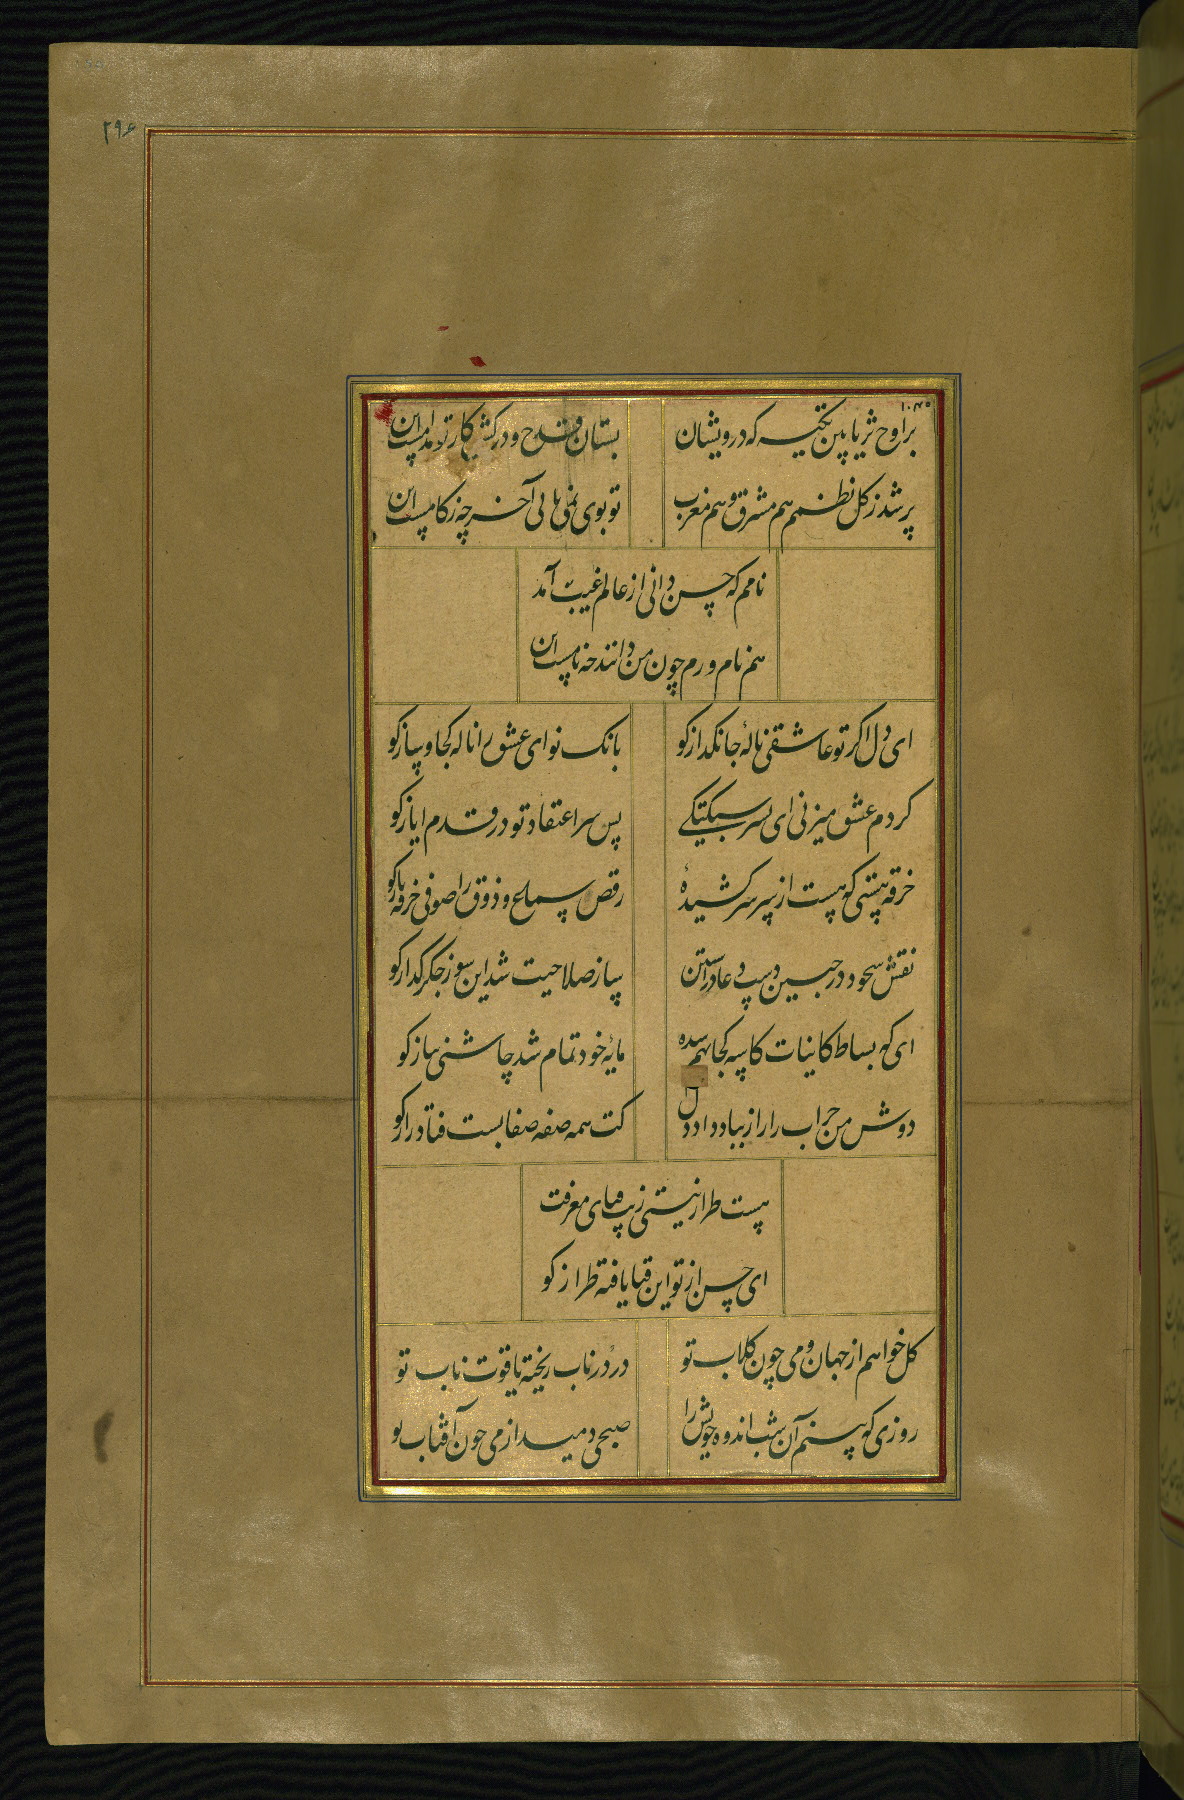 ۲۹۶
۱۰۴۵
بر اوج ثریا بین تکیه که درویشان
بستان قدح و درکش کار تو مدامست این
پر شد ز کل نظمم هم مشرق و هم مغرب
تو بوی نمی یابی آخر چه زکامست این
نامم که حسن دانی از عالم غیب آمد
هم نام ورم چون من دانند چه نامست این
ای دل اگر تو عاشقی نالهٔ جانکداز کو
بانک نوای عشق را ناله کجا و ساز کو
کر دم عشق میزنی ای بسر سبکتکی
پس سر اعتقاد تو در قدم ایاز کو
خرقه هستی که هست از سر سرکشیدهٔ
رقص سماع و ذوق را صوفی خرقه باز کو
نقش سجود در جبین دست دعا در آستین
ساز صلاحیت شد این سوز جکر کداز کو
ای که بساط کاینات کاسه کجا نهم شده
مایهٔ خود تمام شد چاشنی بیاز کو
دوش من خراب را راز بباد داد دل
کت همه صفه صفا بست فتاد راز کو
هست طراز نیستی زیب قبای معرفت
ای حسن از تو این قبا یافته طراز کو
کل خواهم از جهان و می چون کلاب تو
در در ناب ریخته یاقوت ناب تو
روزی که بینم آن شب اندوه خویش را
صبحی دمید از می چون آفتاب تو